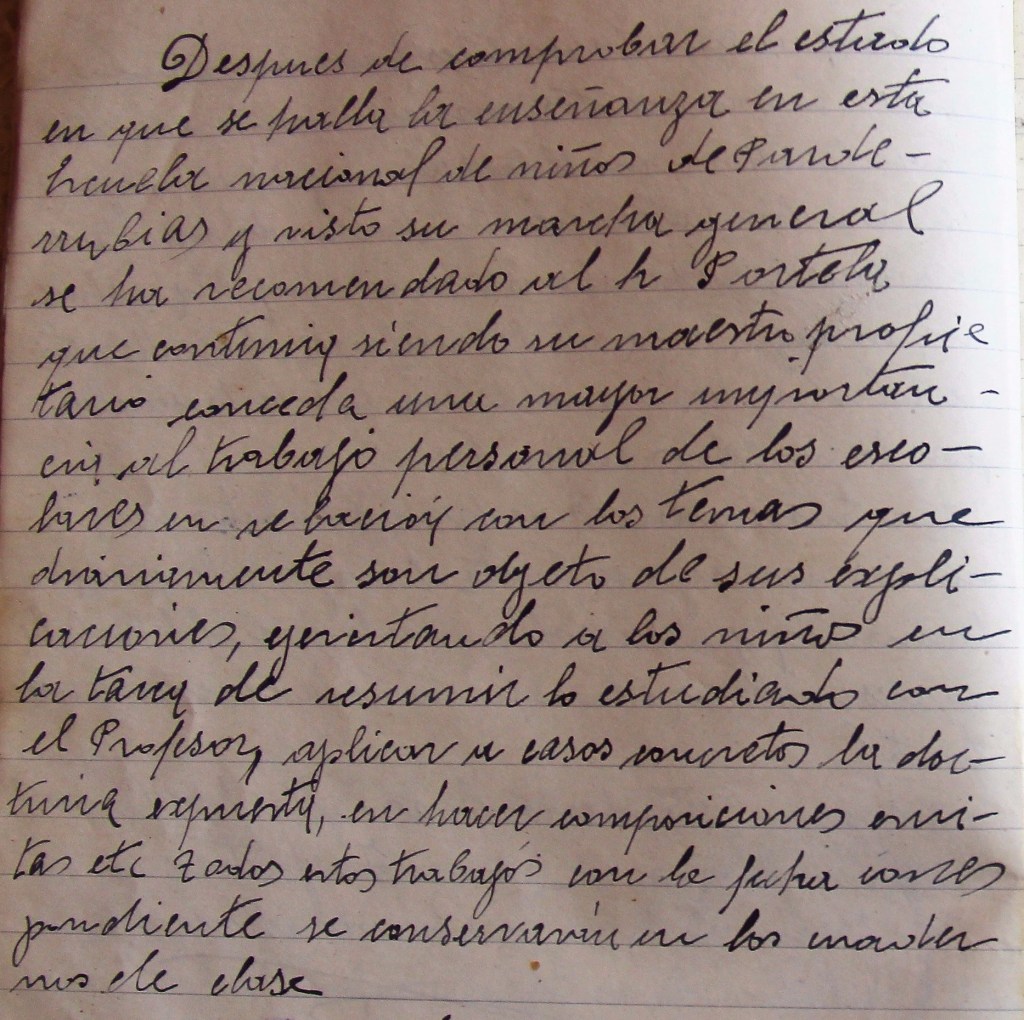 Despues de comprobar el estado
en que se halla la enseñanza en esta
Escuela nacional de niños de Parde-
rrubias y visto su marcha general
se ha recomendado al Sr Portela
que continua siendo su maestro propie
tario conceda una mayor importan-
cia al trabajo personal de los esco-
lares en relación con los temas que
diariamente son objeto de sus expli-
caciones, ejercitando a los niños en
la tarea de resumir lo estudiado con
el Profesor, aplicar a casos concretos la doc-
trina expuesta, en hacer composiciones escri-
tas etc Todos estos trabajos con la fecha corres
pondiente se conservarán en los cuader
nos de clase